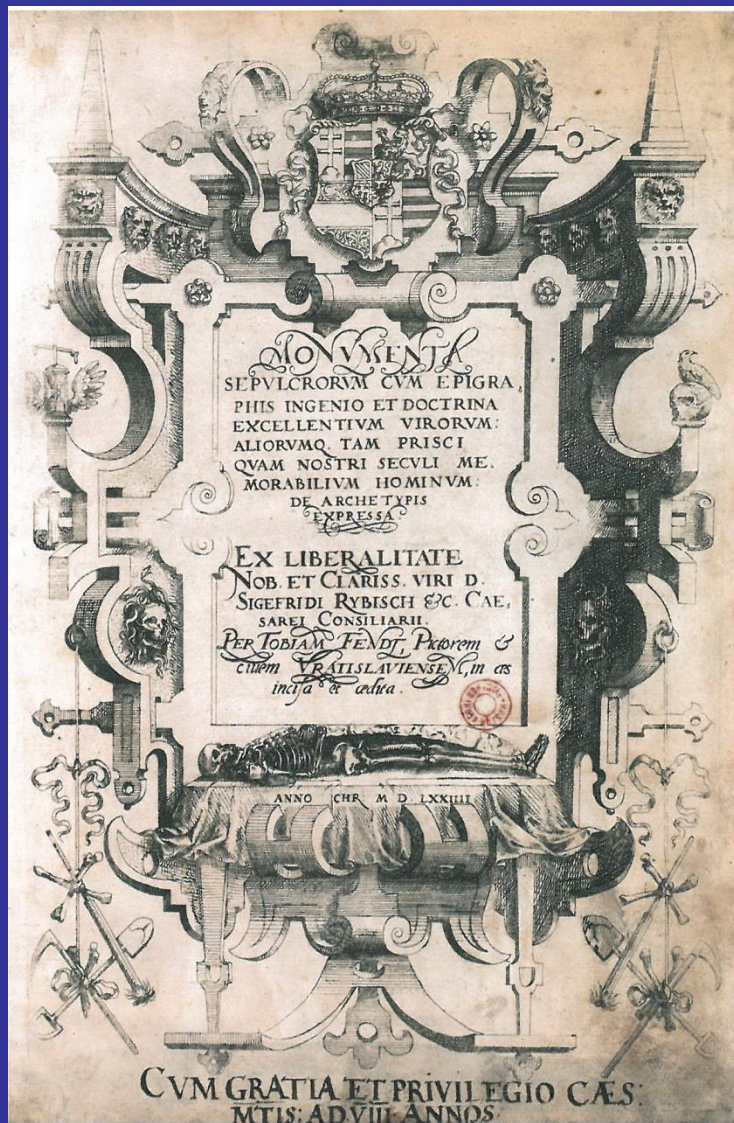 MONVMENTA
SEPVLCRORVM CVM EPIGRA,
PHIS INGENIO ET DOCTRINA
EXCELLENTIVM VIRORVM:
ALIORVMQ. TAM PRISCI
QVAM NOSTRI SECVLI ME,
MORABILIVM HOMINVM:
DE ARCHETYPIS
EXPRESSA.
EX LIBERALITATE
NOB. ET CLARISS. VIRI D.
SIGEFRIDI RYBISCH &C. CAE,
SAREI CONSILIARII.
PER TOBIAM FENDT, Pictorem &
Ciuem VRATISLAVIENSEM, in æs
incisa et ædita.
ANNO CHR M D LXXIIII
CVM GRATIA ET PRIVILEGIO CÆS:
MTIS: AD VIII ANNOS